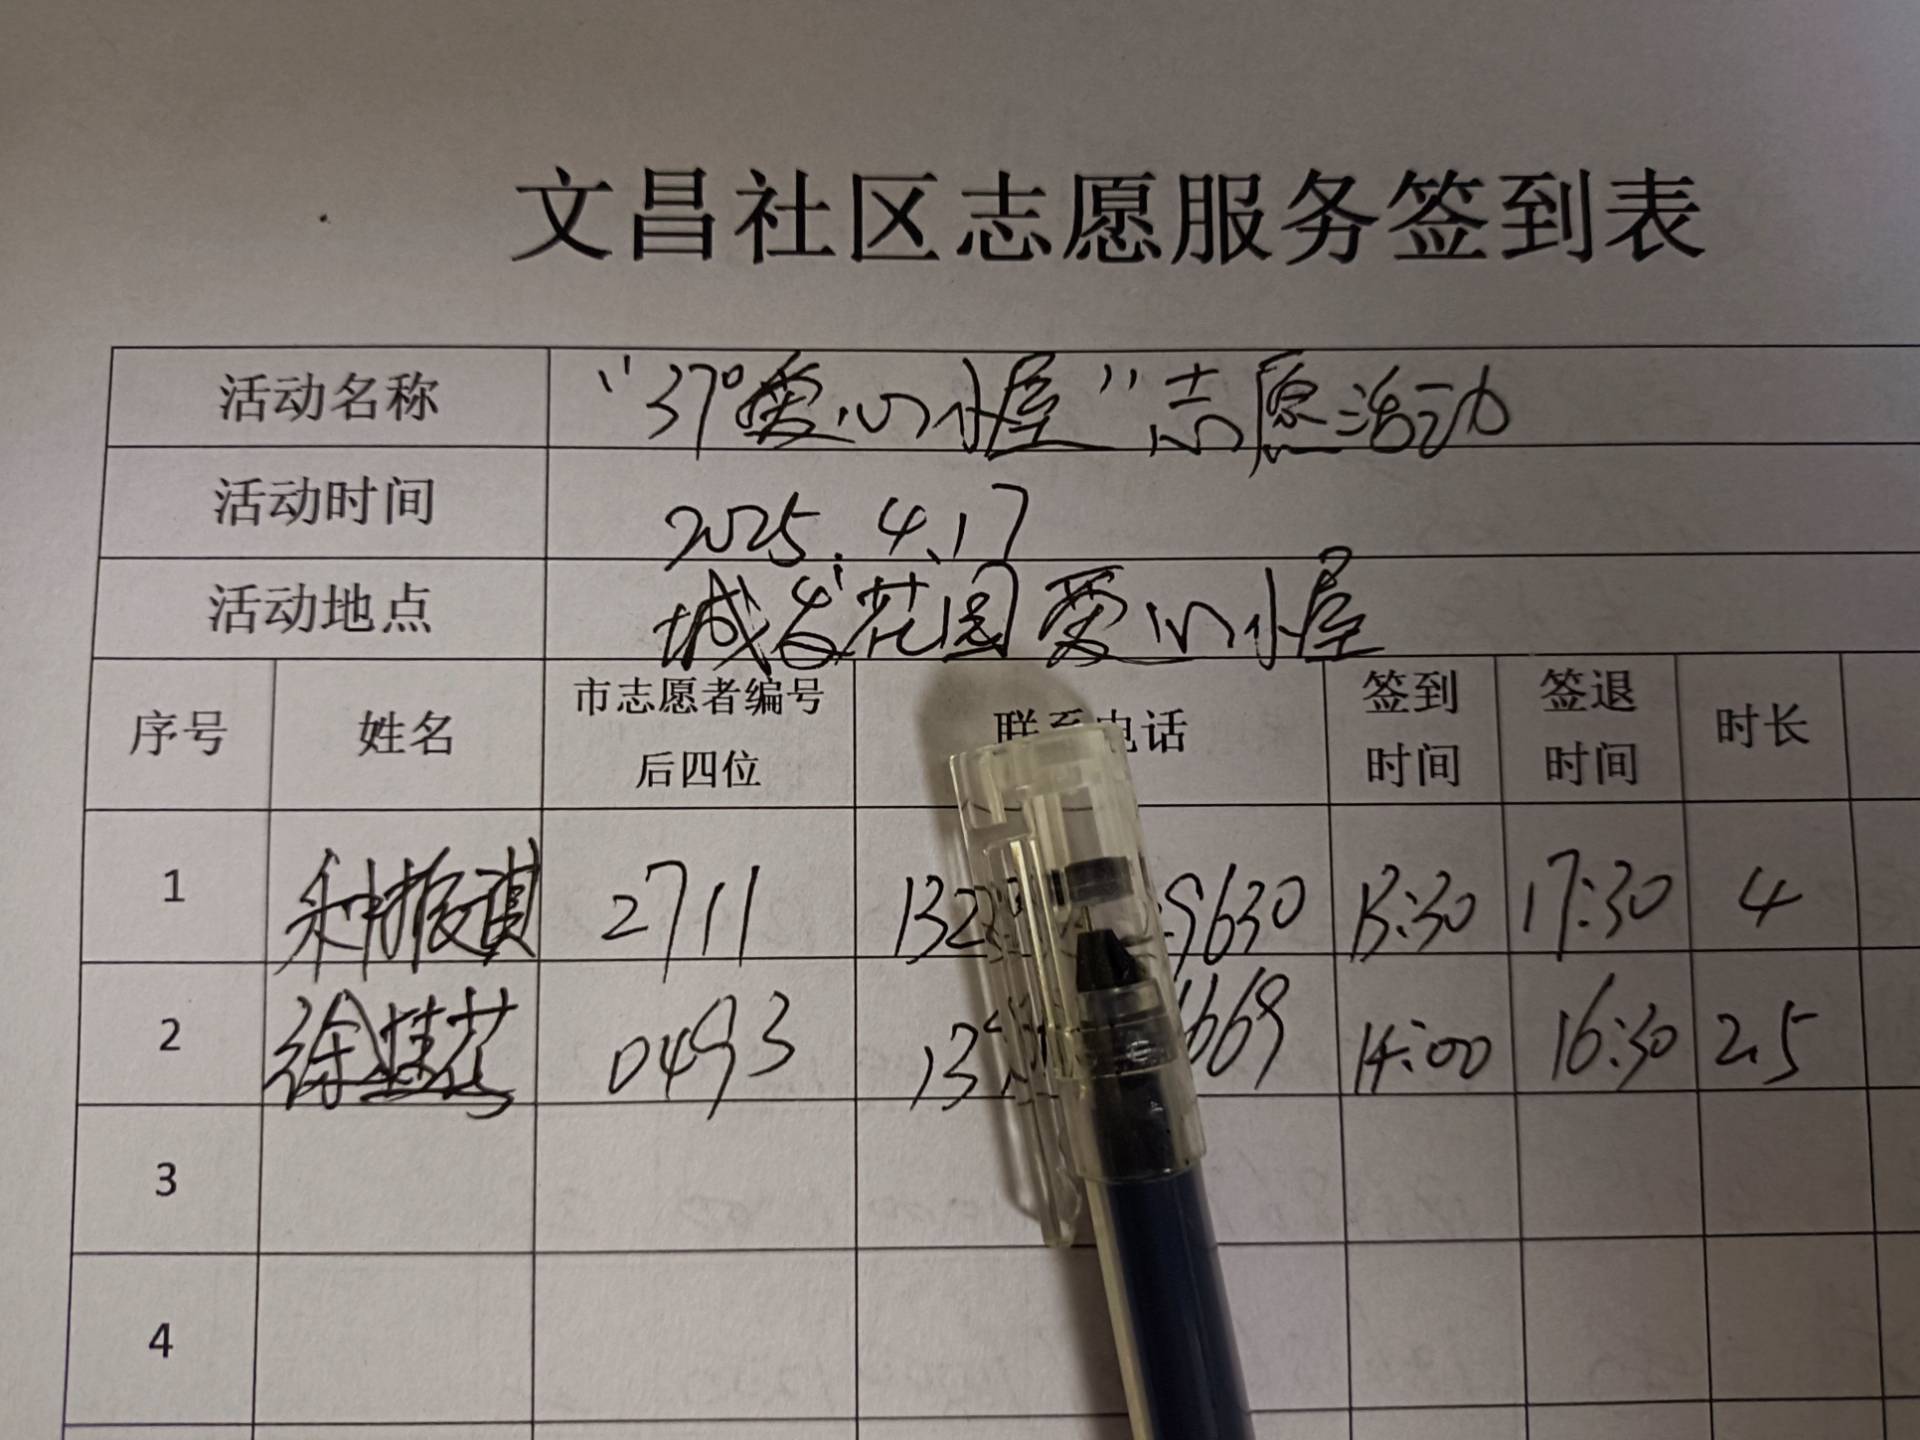 文昌社区志愿服务签到表
活动名称 “37°爱心小屋”志愿活动
活动时间 2025.4.17
活动地点 城发花园爱心小屋
序号 姓名 市志愿者编号后四位 联系电话 签到时间 签退时间 时长
1 2711 132 9630 13:30 17:30 4
2 徐桂花 0493 13 669 14:00 16:30 2.5
3
4